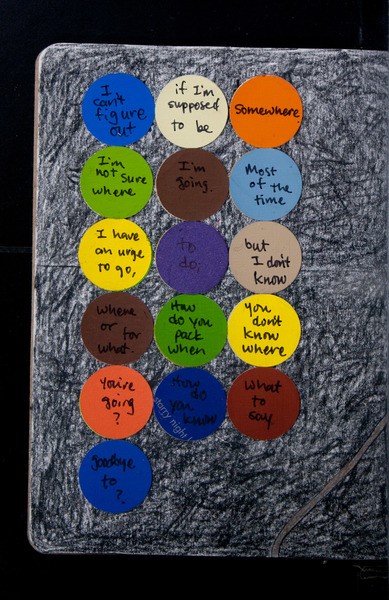 I
can't
figure
out
if I'm
supposed
to be
somewhere
I'm
not sure
where
I'm
going.
Most
of the
time
I have
an urge
to go,
to
do,
but
I don't
know
where
or for
what.
How
do you
pack
when
you
don't
know
where
You're
going
?
How
do
you
know
starry night
What
to
say
goodbye
to
?